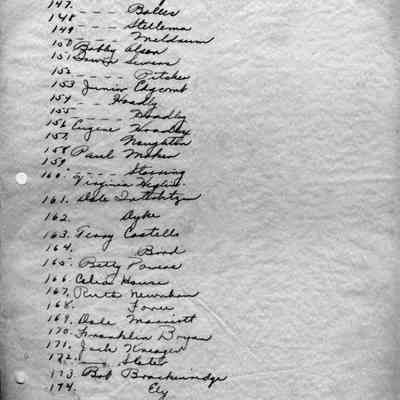 147. - - - - Balles
148 - - - - Stellema
149 - - - - Meldrum
150 Bobby Olson
151 Severs
152 - - - - Pitcher
153 Junior Edgcomb
154 - - Hoadly
155 - - - - Hoadly
156 Eugene Hoadley
157. Naughton
158 Paul Maher
159 - - - - Stocking
160. Virginia
161. Dale
162. Dyke
163. Terry Costello
164. Bond
165. Betty Powers
166 Celia House
167. Ruth Newnham
168.
169. Dale Marriott
170. Franklin Bryan
171. Jack Kreager
172. Slater
173 Bob Brackenridge
174. Ely